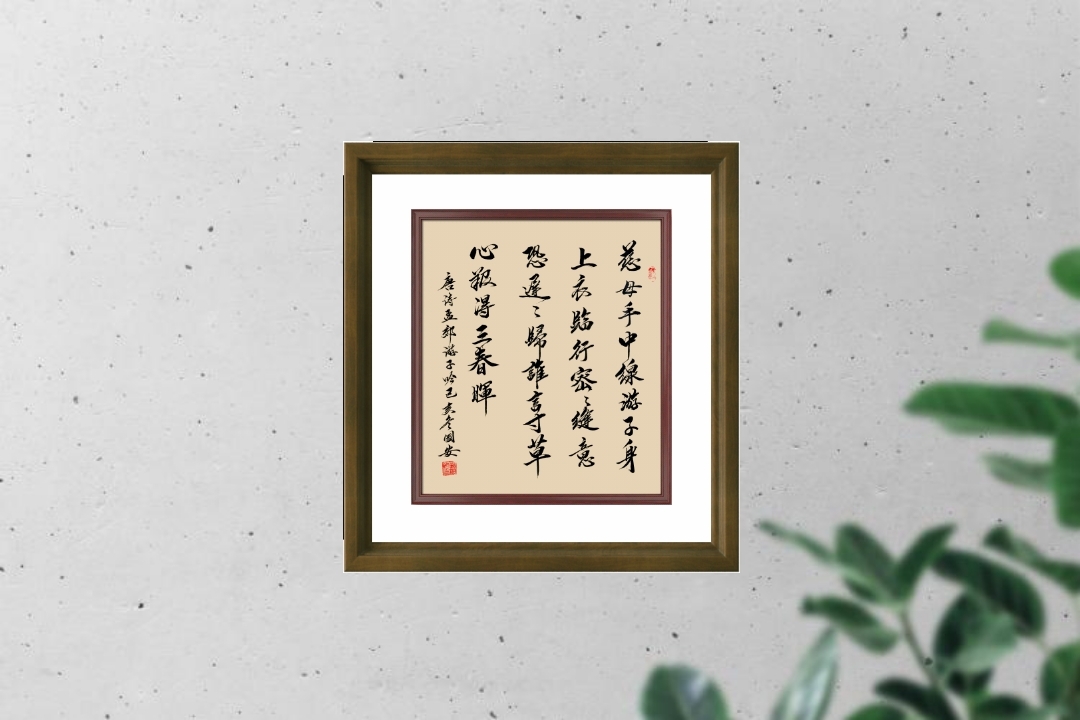 慈母手中線游子身
上衣臨行密〻縫意
恐遲〻歸誰言寸草
心報得三春暉
唐诗孟郊游子吟己亥冬國安